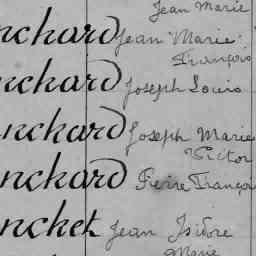 Jean Marie
nchard Jean Marie
François
nchard Joseph Louis
nchard Joseph Marie
Victor
nchard Pierre François
nchet Jean Isidore
Marie